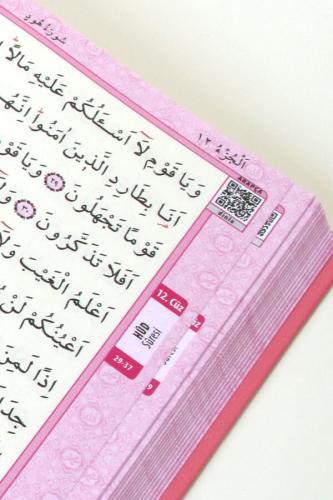 سورة هود
الجزء ١٢
ARAPÇA
dinle
وَيَا قَوْمِ لَٓا اَسْـَٔلُكُمْ عَلَيْهِ مَالًا
اَنَا بِطَارِدِ الَّذٖينَ اٰمَنُوا اِنَّهُ
قَوْمًا تَجْهَلُونَ ﴿٢٩﴾ وَيَا قَوْ
اَفَلَا تَذَكَّرُونَ ﴿٣٠﴾ وَلَٓا
اَعْلَمُ الْغَيْبَ وَلَٓا
اَعْيُنُكُمْ لَنْ
اِذًا لَمِنَ
12. Cüz
HÛD
Sûresi
29-37